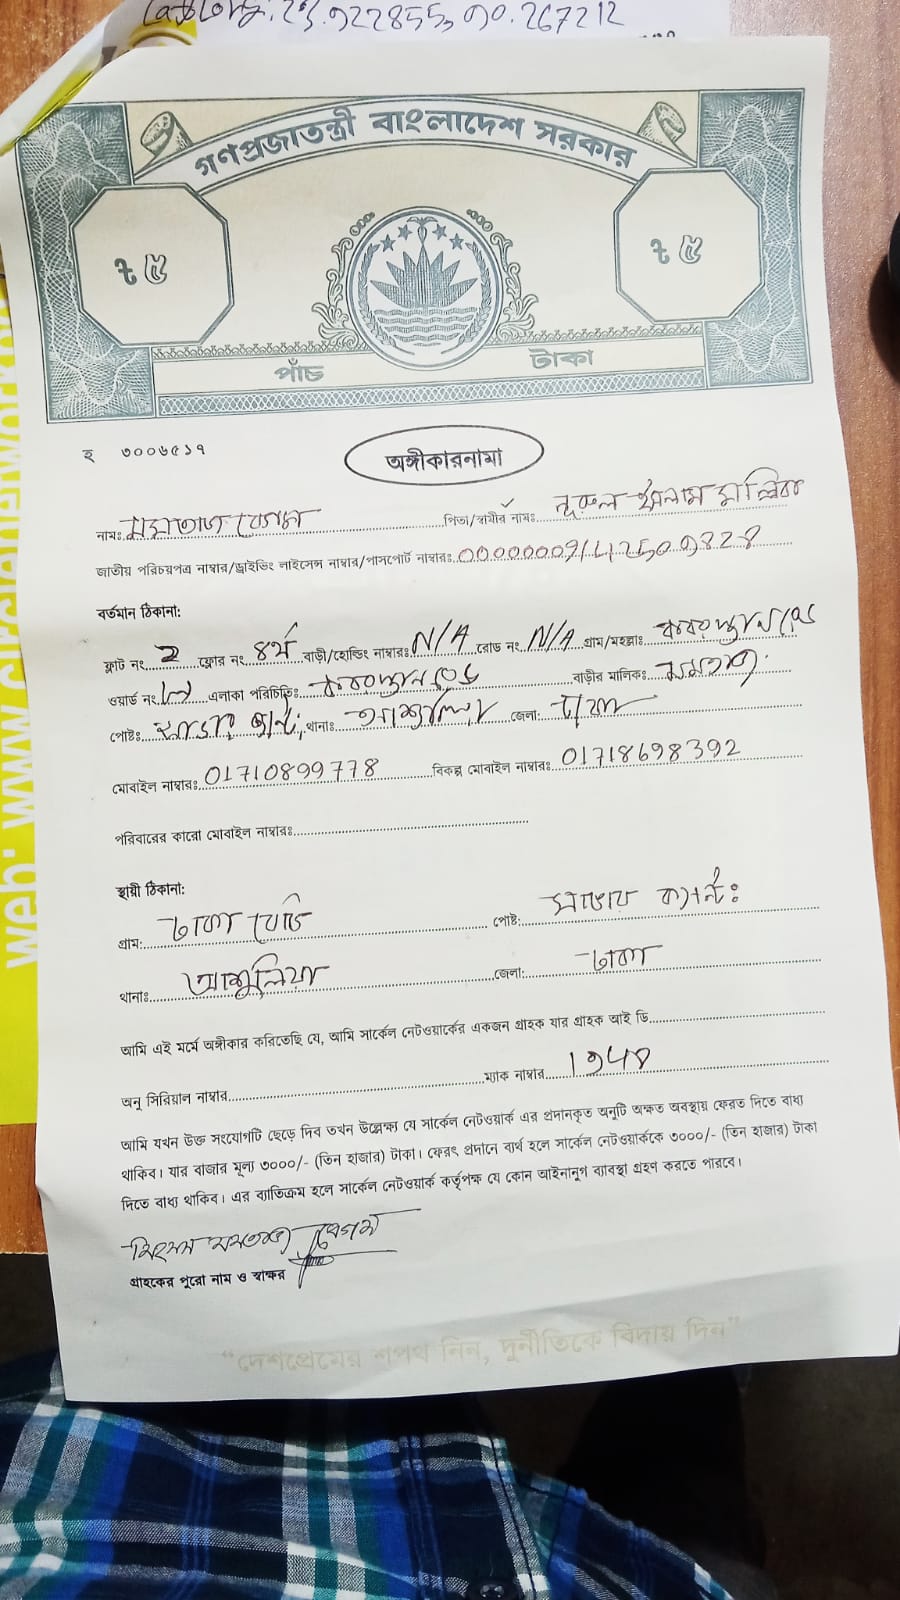 23.922855, 90.267212
গণপ্রজাতন্ত্রী বাংলাদেশ সরকার
৳ ৫ ৳ ৫
পাঁচ টাকা
হ ৩০০৬৫১৭
অঙ্গীকারনামা
নাম: মমতাজ বেগম পিতা/স্বামীর নাম: নুরুল ইসলাম মল্লিক
জাতীয় পরিচয়পত্র নাম্বার/ড্রাইভিং লাইসেন্স নাম্বার/পাসপোর্ট নাম্বারঃ
বর্তমান ঠিকানা:
ফ্লাট নং 2 ফ্লোর নং ৪র্থ বাড়ী/হোল্ডিং নাম্বারঃ N/A রোড নং N/A গ্রাম/মহল্লাঃ
ওয়ার্ড নং এলাকা পরিচিতিঃ বাড়ীর মালিকঃ মমতাজ
পোষ্টঃ থানাঃ আশুলিয়া জেলা: ঢাকা
মোবাইল নাম্বারঃ 01710899778 বিকল্প মোবাইল নাম্বারঃ 01718698392
পরিবারের কারো মোবাইল নাম্বারঃ
স্থায়ী ঠিকানা:
গ্রাম: পোষ্ট: সাভার ক্যান্টঃ
থানাঃ আশুলিয়া জেলা: ঢাকা
আমি এই মর্মে অঙ্গীকার করিতেছি যে, আমি সার্কেল নেটওয়ার্কের একজন গ্রাহক যার গ্রাহক আই ডি
অনু সিরিয়াল নাম্বার ম্যাক নাম্বার
আমি যখন উক্ত সংযোগটি ছেড়ে দিব তখন উল্লেক্ষ্য যে সার্কেল নেটওয়ার্ক এর প্রদানকৃত অনুটি অক্ষত অবস্থায় ফেরত দিতে বাধ্য
থাকিব। যার বাজার মূল্য ৩০০০/- (তিন হাজার) টাকা। ফেরৎ প্রদানে ব্যর্থ হলে সার্কেল নেটওয়ার্ককে ৩০০০/- (তিন হাজার) টাকা
দিতে বাধ্য থাকিব। এর ব্যতিক্রম হলে সার্কেল নেটওয়ার্ক কর্তৃপক্ষ যে কোন আইনানুগ ব্যাবস্থা গ্রহণ করতে পারবে।
মমতাজ বেগম
গ্রাহকের পুরো নাম ও স্বাক্ষর
“দেশপ্রেমের শপথ নিন, দুর্নীতিকে বিদায় দিন”